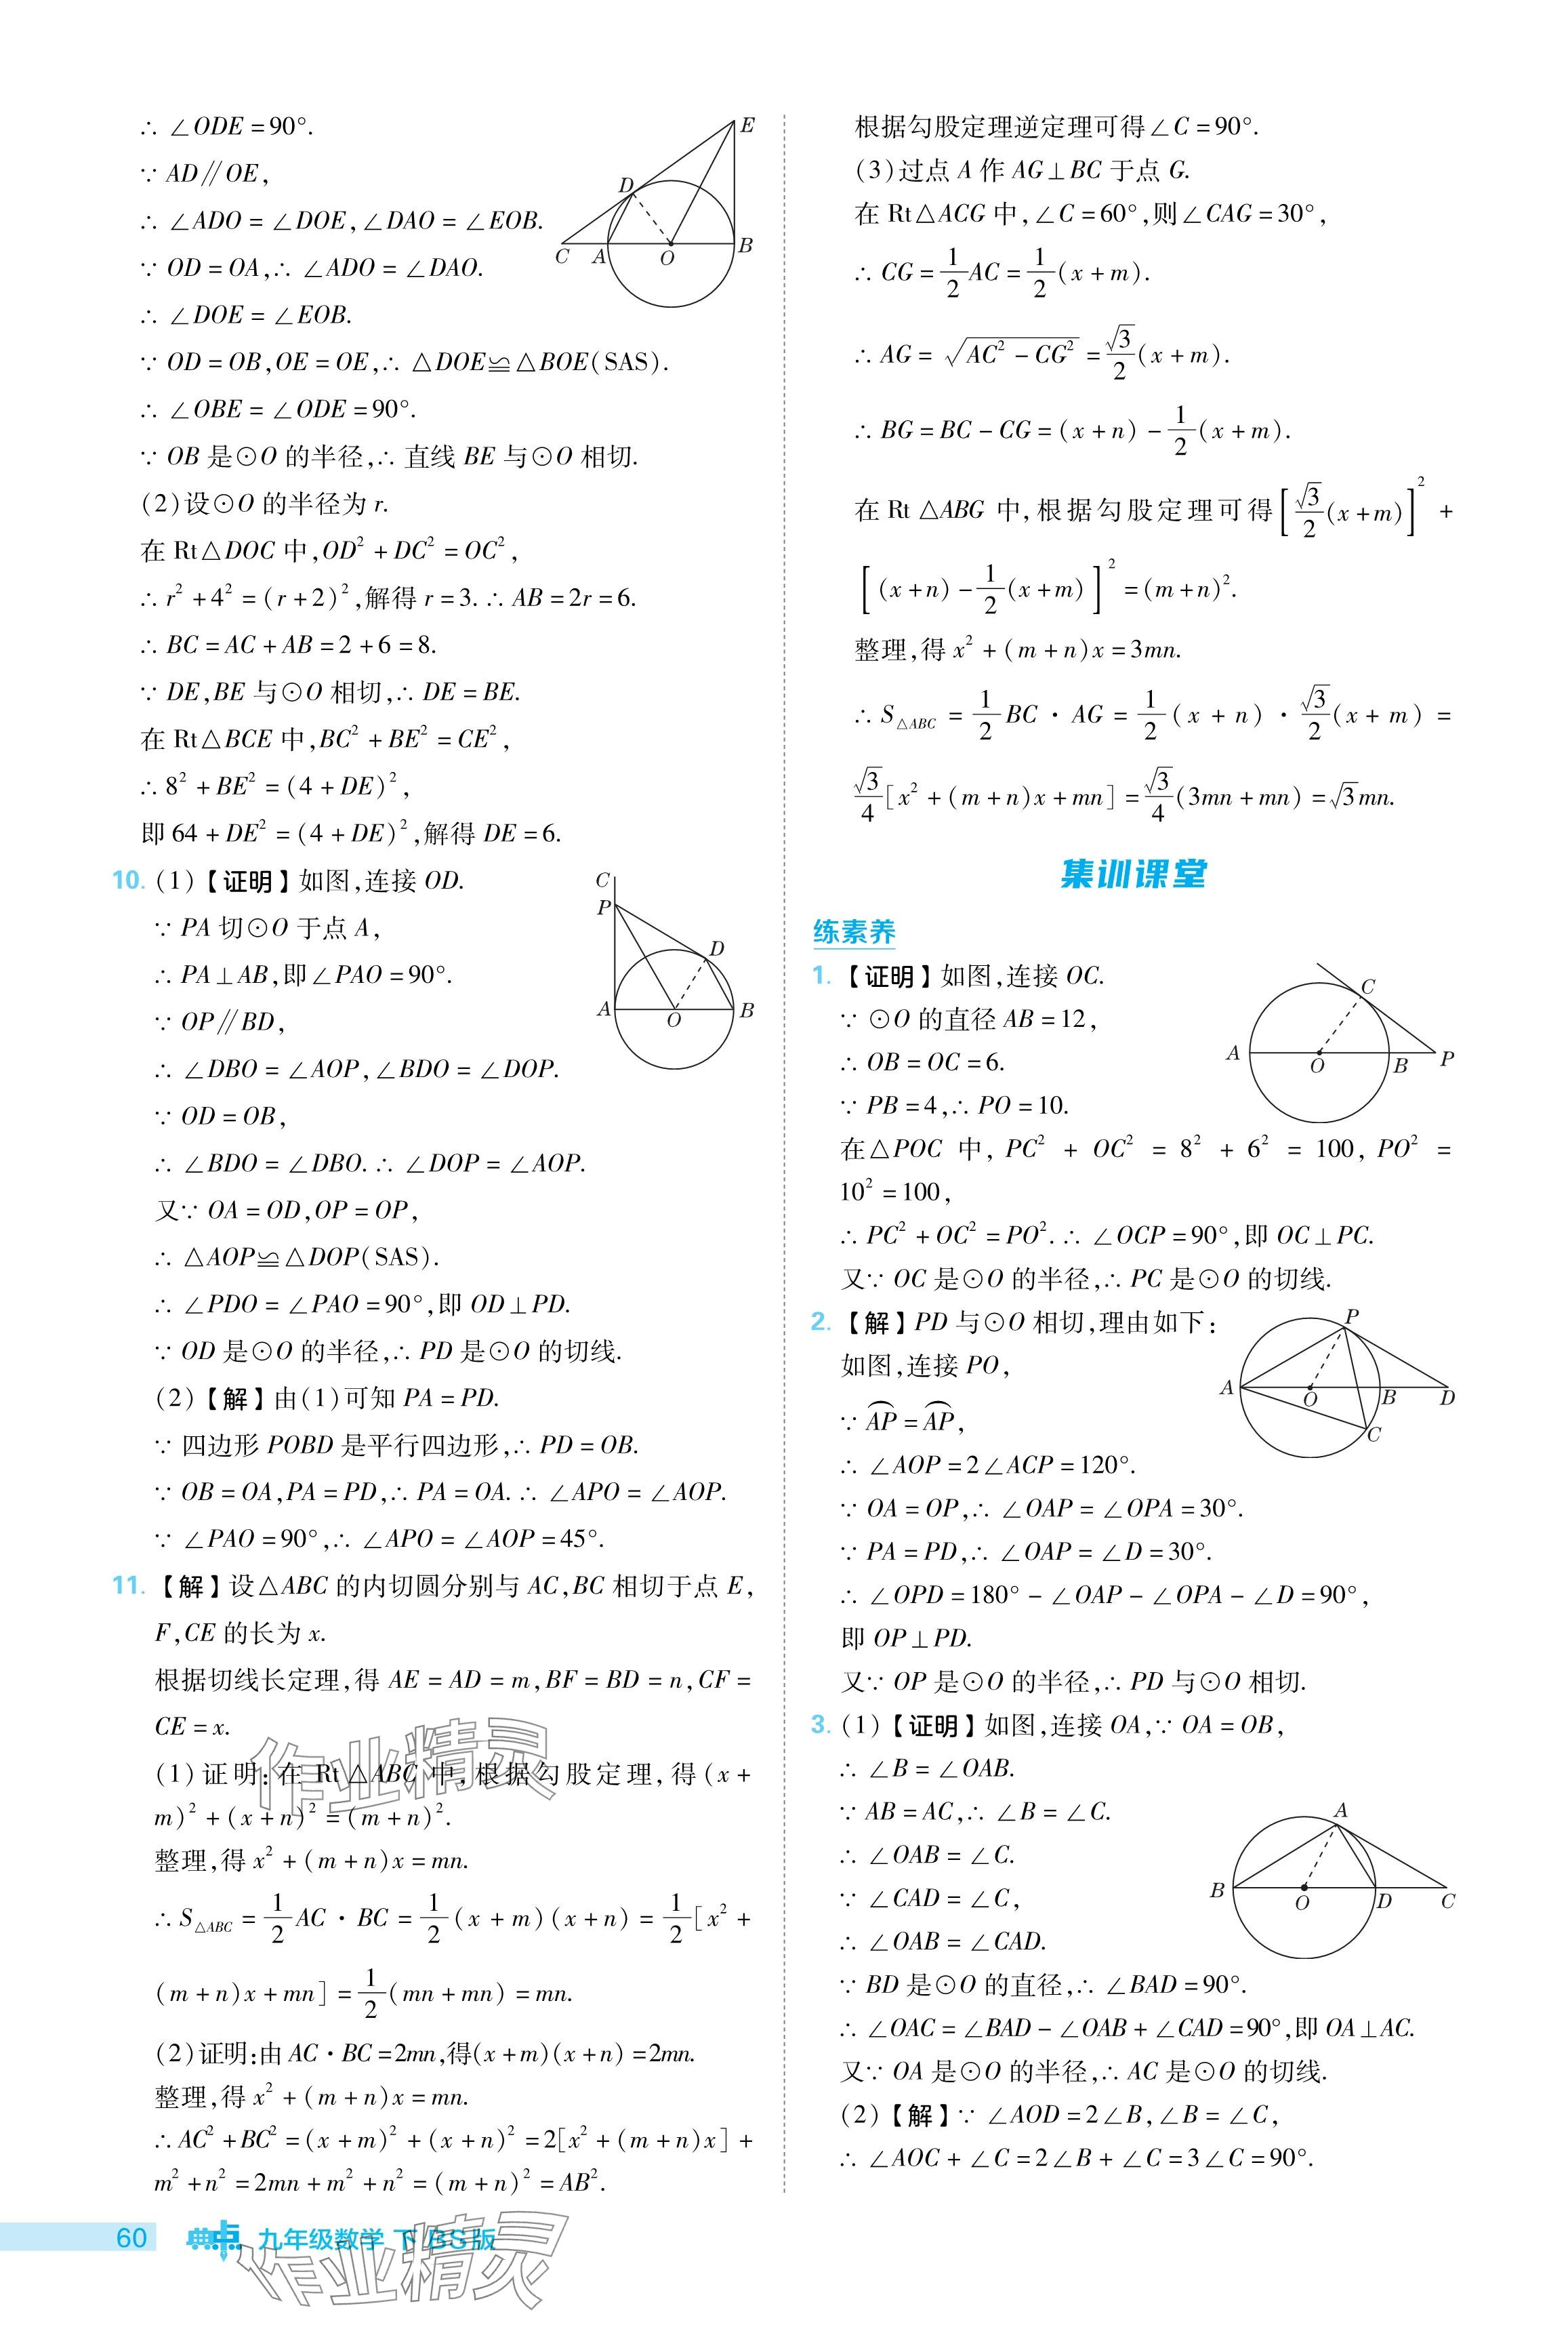 ∴ ∠ODE=90°.
∵ AD∥OE,
∴ ∠ADO=∠DOE,∠DAO=∠EOB.
∵ OD=OA,∴ ∠ADO=∠DAO.
∴ ∠DOE=∠EOB.
∵ OD=OB,OE=OE,∴ △DOE≌△BOE(SAS).
∴ ∠OBE=∠ODE=90°.
∵ OB 是⊙O 的半径,∴ 直线 BE 与⊙O 相切.
(2)设⊙O 的半径为 r.
在 Rt△DOC 中,OD²+DC²=OC²,
∴ r²+4²=(r+2)²,解得 r=3.∴ AB=2r=6.
∴ BC=AC+AB=2+6=8.
∵ DE,BE 与⊙O 相切,∴ DE=BE.
在 Rt△BCE 中,BC²+BE²=CE²,
∴ 8²+BE²=(4+DE)²,
即 64+DE²=(4+DE)²,解得 DE=6.
E
D
C A O B
10. (1)【证明】如图,连接 OD.
∵ PA 切⊙O 于点 A,
∴ PA⊥AB,即∠PAO=90°.
∵ OP∥BD,
∴ ∠DBO=∠AOP,∠BDO=∠DOP.
∵ OD=OB,
∴ ∠BDO=∠DBO.∴ ∠DOP=∠AOP.
又∵ OA=OD,OP=OP,
∴ △AOP≌△DOP(SAS).
∴ ∠PDO=∠PAO=90°,即 OD⊥PD.
∵ OD 是⊙O 的半径,∴ PD 是⊙O 的切线.
(2)【解】由(1)可知 PA=PD.
∵ 四边形 POBD 是平行四边形,∴ PD=OB.
∵ OB=OA,PA=PD,∴ PA=OA.∴ ∠APO=∠AOP.
∵ ∠PAO=90°,∴ ∠APO=∠AOP=45°.
C
P
D
A O B
11. 【解】设△ABC 的内切圆分别与 AC,BC 相切于点 E,
F,CE 的长为 x.
根据切线长定理,得 AE=AD=m,BF=BD=n,CF=
CE=x.
(1)证明:在 Rt△ABC 中,根据勾股定理,得(x+
m)²+(x+n)²=(m+n)².
整理,得 x²+(m+n)x=mn.
∴ S△ABC=1/2 AC·BC=1/2(x+m)(x+n)=1/2[x²+
(m+n)x+mn]=1/2(mn+mn)=mn.
(2)证明:由 AC·BC=2mn,得(x+m)(x+n)=2mn.
整理,得 x²+(m+n)x=mn.
∴ AC²+BC²=(x+m)²+(x+n)²=2[x²+(m+n)x]+
m²+n²=2mn+m²+n²=(m+n)²=AB².
作业精灵
60 典中点 九年级数学 下 BS版
作业精灵
根据勾股定理逆定理可得∠C=90°.
(3)过点 A 作 AG⊥BC 于点 G.
在 Rt△ACG 中,∠C=60°,则∠CAG=30°,
∴ CG=1/2 AC=1/2(x+m).
∴ AG=√(AC²-CG²)=√3/2(x+m).
∴ BG=BC-CG=(x+n)-1/2(x+m).
在 Rt △ABG 中,根据勾股定理可得[√3/2(x+m)]²+
[(x+n)-1/2(x+m)]²=(m+n)².
整理,得 x²+(m+n)x=3mn.
∴ S△ABC=1/2 BC·AG=1/2(x+n)·√3/2(x+m)=
√3/4[x²+(m+n)x+mn]=√3/4(3mn+mn)=√3mn.
集训课堂
练素养
1. 【证明】如图,连接 OC.
∵ ⊙O 的直径 AB=12,
∴ OB=OC=6.
∵ PB=4,∴ PO=10.
在△POC 中,PC²+OC²=8²+6²=100,PO²=
10²=100,
∴ PC²+OC²=PO².∴ ∠OCP=90°,即 OC⊥PC.
又∵ OC 是⊙O 的半径,∴ PC 是⊙O 的切线.
C
A O B P
2. 【解】PD 与⊙O 相切,理由如下:
如图,连接 PO,
∵ A͡P=A͡P,
∴ ∠AOP=2∠ACP=120°.
∵ OA=OP,∴ ∠OAP=∠OPA=30°.
∵ PA=PD,∴ ∠OAP=∠D=30°.
∴ ∠OPD=180°-∠OAP-∠OPA-∠D=90°,
即 OP⊥PD.
又∵ OP 是⊙O 的半径,∴ PD 与⊙O 相切.
P
A O B D
C
3. (1)【证明】如图,连接 OA,∵ OA=OB,
∴ ∠B=∠OAB.
∵ AB=AC,∴ ∠B=∠C.
∴ ∠OAB=∠C.
∵ ∠CAD=∠C,
∴ ∠OAB=∠CAD.
∵ BD 是⊙O 的直径,∴ ∠BAD=90°.
∴ ∠OAC=∠BAD-∠OAB+∠CAD=90°,即 OA⊥AC.
又∵ OA 是⊙O 的半径,∴ AC 是⊙O 的切线.
(2)【解】∵ ∠AOD=2∠B,∠B=∠C,
∴ ∠AOC+∠C=2∠B+∠C=3∠C=90°.
A
B O D C